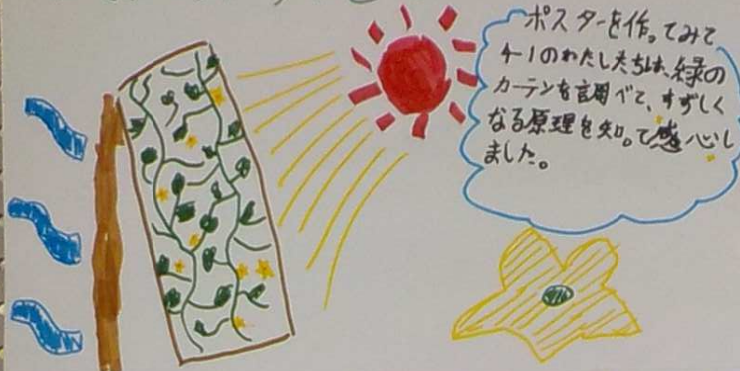 ポスターを作ってみて
4-1のわたしたちは、緑の
カーテンを調べて、すずしく
なる原理を知って感心し
ました。